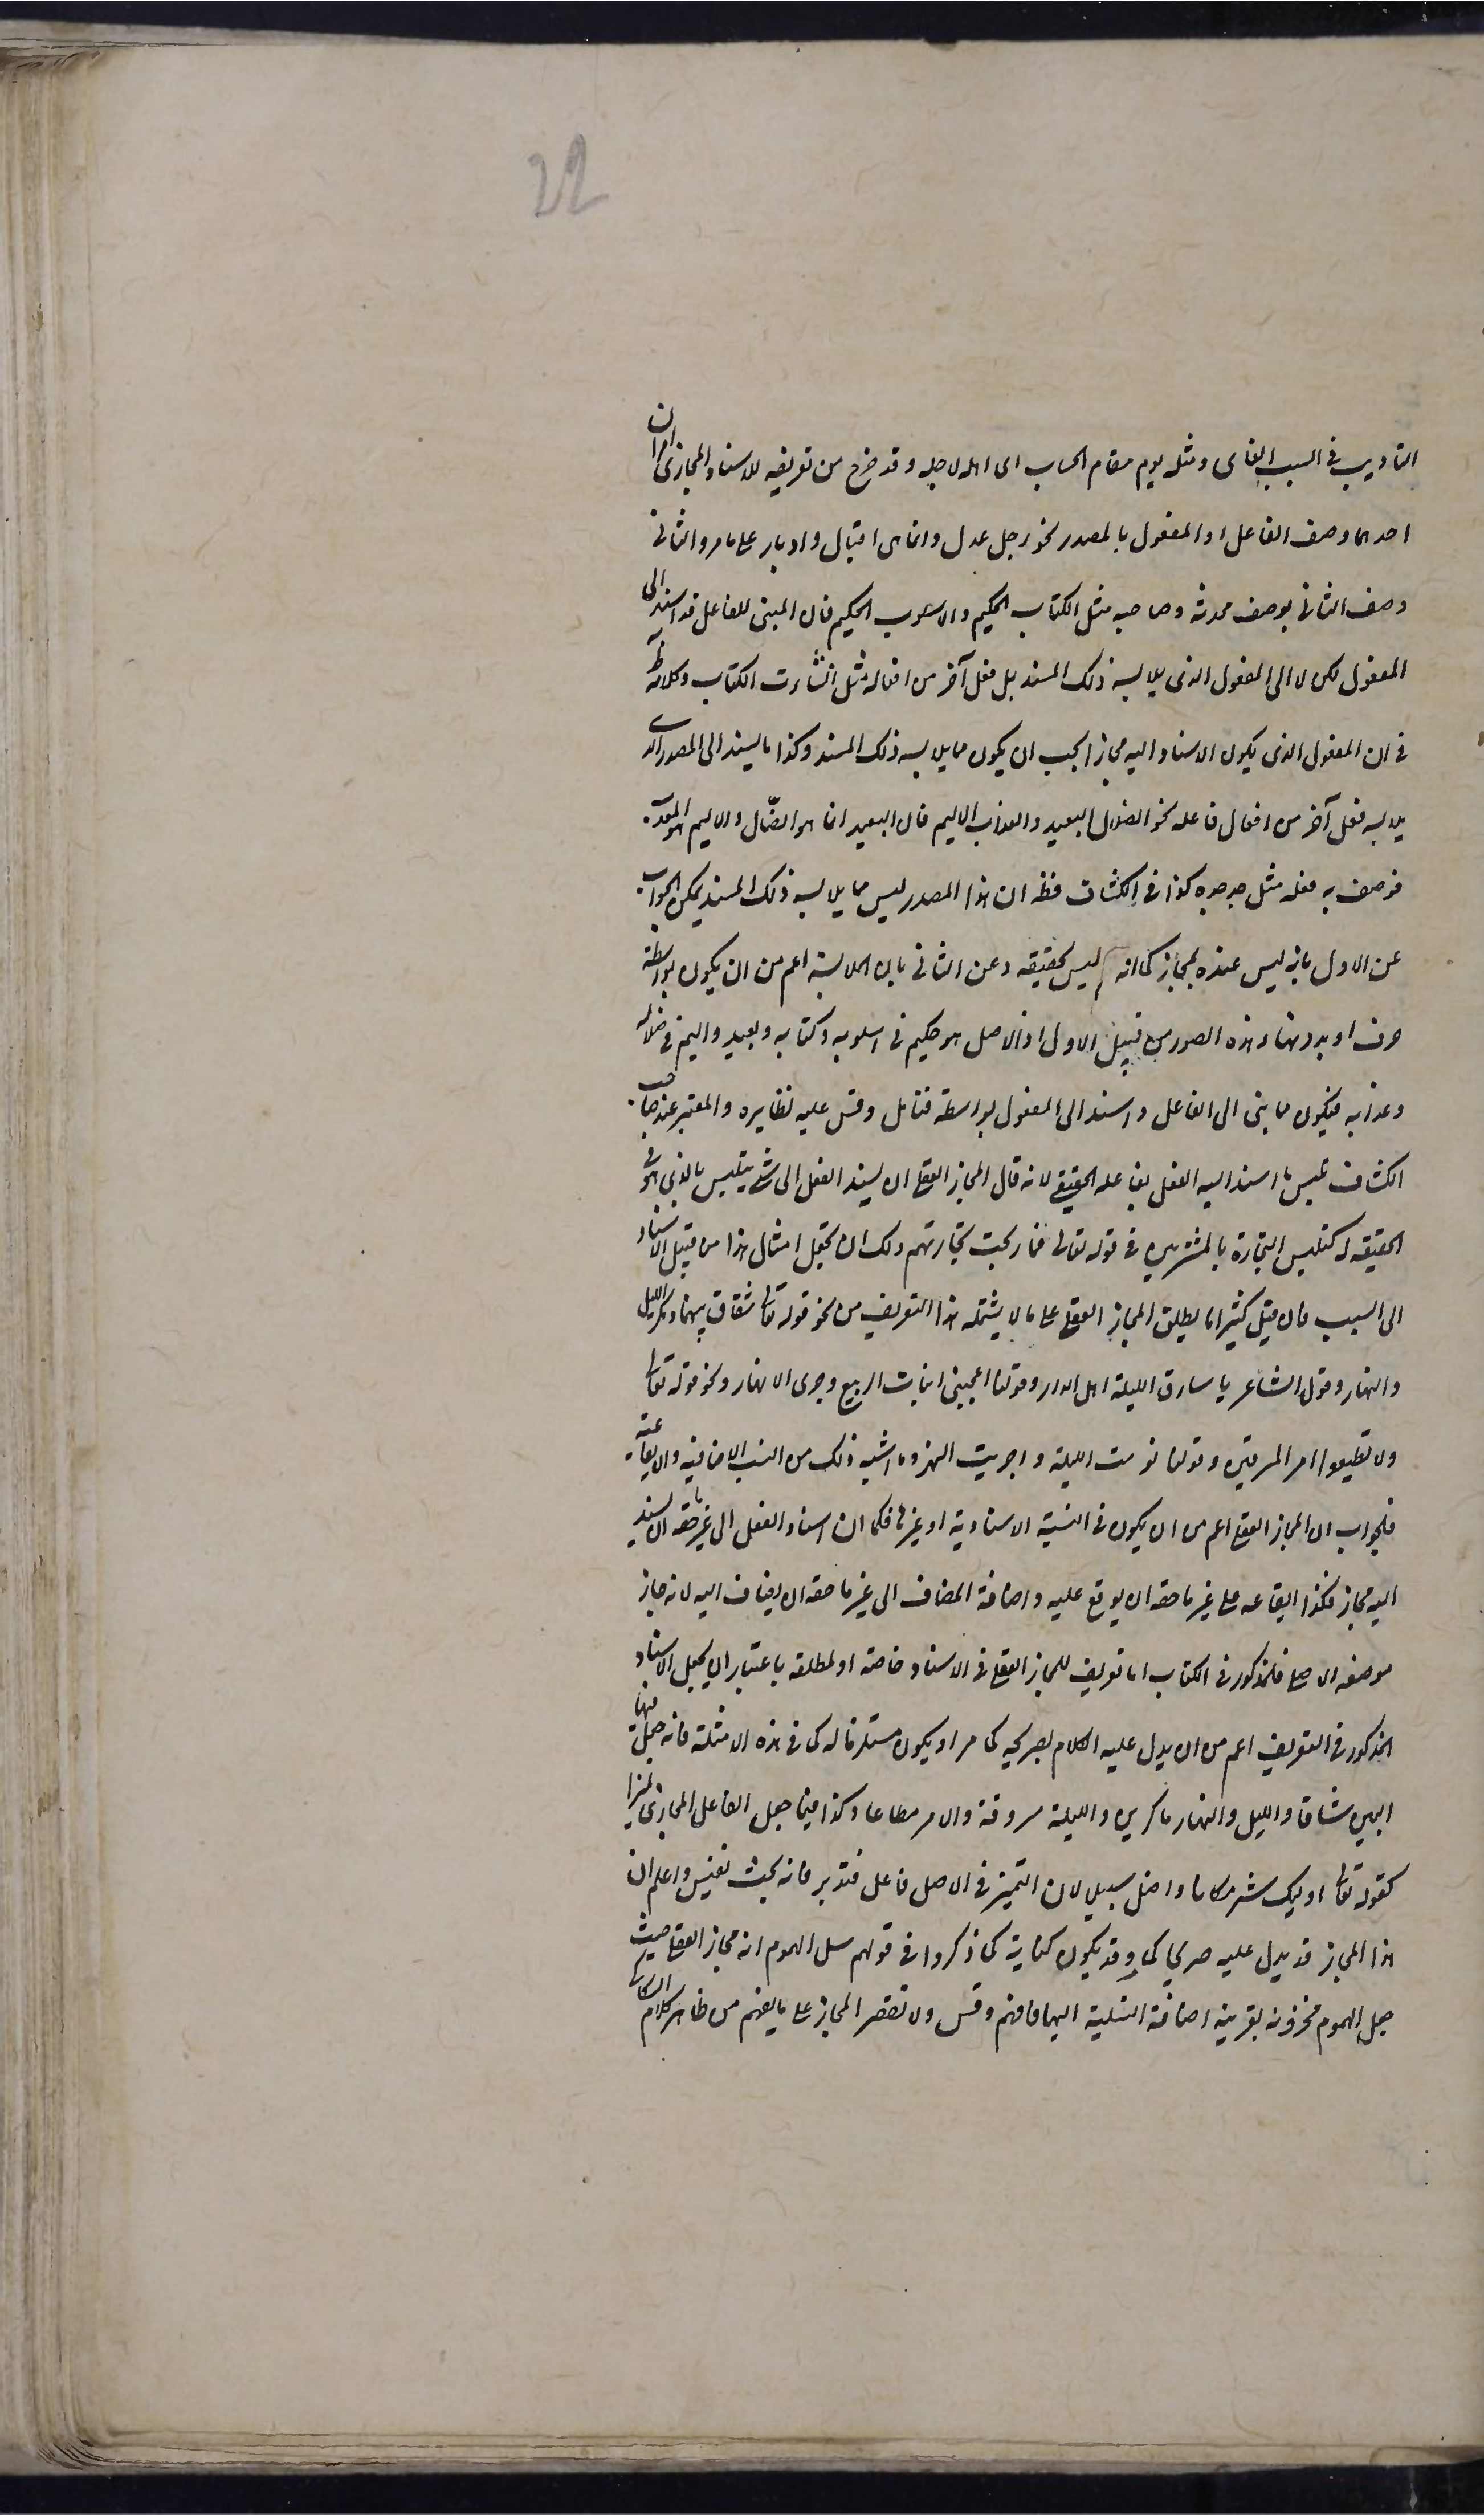 22
التاديب فى السبب الغاى ومثله يوم مقام الحساب اى اهله لاجله وقد خرج من تعريفه للاسناد المجازى امران
احدهما وصف الفاعل او المفعول بالمصدر نحو رجل عدل وانما هى اقبال وادبار على ما مر والثانى
وصف الثانى بوصف محدثه وصاحبه مثل الكتاب الحكيم والاسلوب الحكيم فان المبنى للفاعل قد اسند الى
المفعول لكن لا الى المفعول الذى يلابسه ذلك المسند بل فعل آخر من افعاله مثل انشاءت الكتاب وكلامه
فى ان المفعول الذى يكون الاسناد اليه مجازا يجب ان يكون مما يلابسه ذلك المسند وكذا ما يسند الى المصدر الذى
يلابسه فعل آخر من افعال فاعله نحو الضلال البعيد والعذاب الاليم فان البعيد انما هو الضال والاليم هو المعذب
فوصف به فعله مثل جد جده كذا فى الكشاف فظ ان هذا المصدر ليس مما يلابسه ذلك المسند يمكن الجواب
عن الاول بانه ليس عنده بمجاز كما انه ليس بحقيقه وعن الثانى بان الملابسة اعم من ان يكون بواسطة
حرف او بدونها وهذه الصور من قبيل الاول اذ الاصل هو حكيم فى اسلوبه وكتابه وبعيد واليم فى ضلاله
وعذابه فيكون مما بنى الى الفاعل واسند الى المفعول بواسطة فتامل وقس عليه نظايره والمعتبر عند صاحب
الكشاف تلبس ما اسند اليه الفعل بفاعله الحقيقى لانه قال المجاز العقلى ان يسند الفعل الى شى يتلبس بالذى هو فى
الحقيقه له كتلبس التجارة بالمشترين فى قوله تعالى فما ربحت تجارتهم ولك ان تجعل امثال هذا من قبيل الاسناد
الى السبب فان قيل كثيرا ما يطلق المجاز العقلى على ما لا يشتمله هذا التعريف من نحو قوله تعالى شقاق بينهما ومكر الليل
والنهار وقول الشاعر يا سارق الليلة اهل الدار وقولنا اعجبنى انبات الربيع وجرى الانهار ونحو قوله تعالى
ولا تطيعوا امر المسرفين وقولنا نومت الليلة واجريت النهر وما اشبه ذلك من النسب الاضافيه والايقاعية
فالجواب ان المجاز العقلى اعم من ان يكون فى النسبة الاسنادية او غيرها فكما ان اسناد الفعل الى غير ما حقه ان يسند
اليه مجاز فكذا ايقاعه على غير ما حقه ان يوقع عليه واضافة المضاف الى غير ما حقه ان يضاف اليه لانه جاز
موضعه الاصلى فالمذكور فى الكتاب اما تعريف للمجاز العقلى فى الاسناد خاصة او لمطلقه باعتبار ان يجعل الاسناد
المذكور فى التعريف اعم من ان يدل عليه الكلام بصريحه كما مر او يكون مستلزما له كما فى هذه الامثلة فانه جعل فيها
البين شاقا والليل والنهار ماكرين والليلة مسروقة والامر مطاعا وكذا فيما جعل الفاعل المجازى تميزا
كقوله تعالى اوليك شر مكانا واضل سبيلا لان التميز فى الاصل فاعل فتدبر فانه بحث نفيس واعلم ان
هذا المجاز قد يدل عليه صريحا كما مر وقد يكون كناية كما ذكروا فى قولهم سل الهموم انه مجاز العقلى حيث
جعل الهموم محزونة بقرينه اضافة التسلية اليها فافهم وقس ولا تقصر المجاز على ما يفهم من ظاهر كلام السكاكى